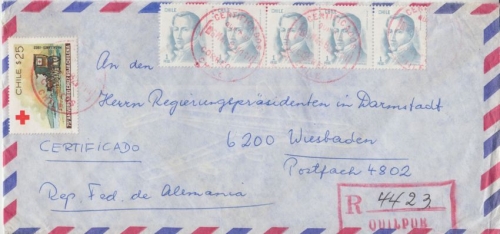 CHILE
CHILE
CHILE $25
CERTIFICADO
CERTIFICADO
An den
Herrn Regierungspräsidenten in Darmstadt
6200 Wiesbaden
Postfach 4802
CERTIFICADO
Rep. Fed. de Alemania
R 4423
QUILPUE